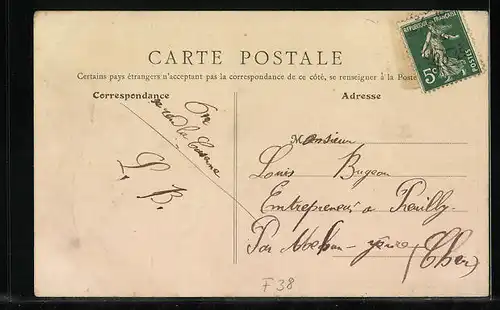 CARTE POSTALE
Certains pays étrangers n'acceptant pas la correspondance de ce côté, se renseigner à la Poste
Correspondance
Adresse
REPUBLIQUE FRANÇAISE
POSTES
5c
On
se rend la Caserne
L. B.
Monsieur
Louis Bugeon
Entrepreneur a Preuilly
Par Mehun-yèvre
(Cher)
F 38